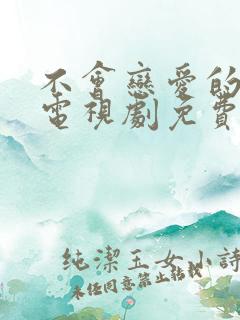 不會戀愛的
電視劇免費
純潔玉女小詩
未经同意禁止转载